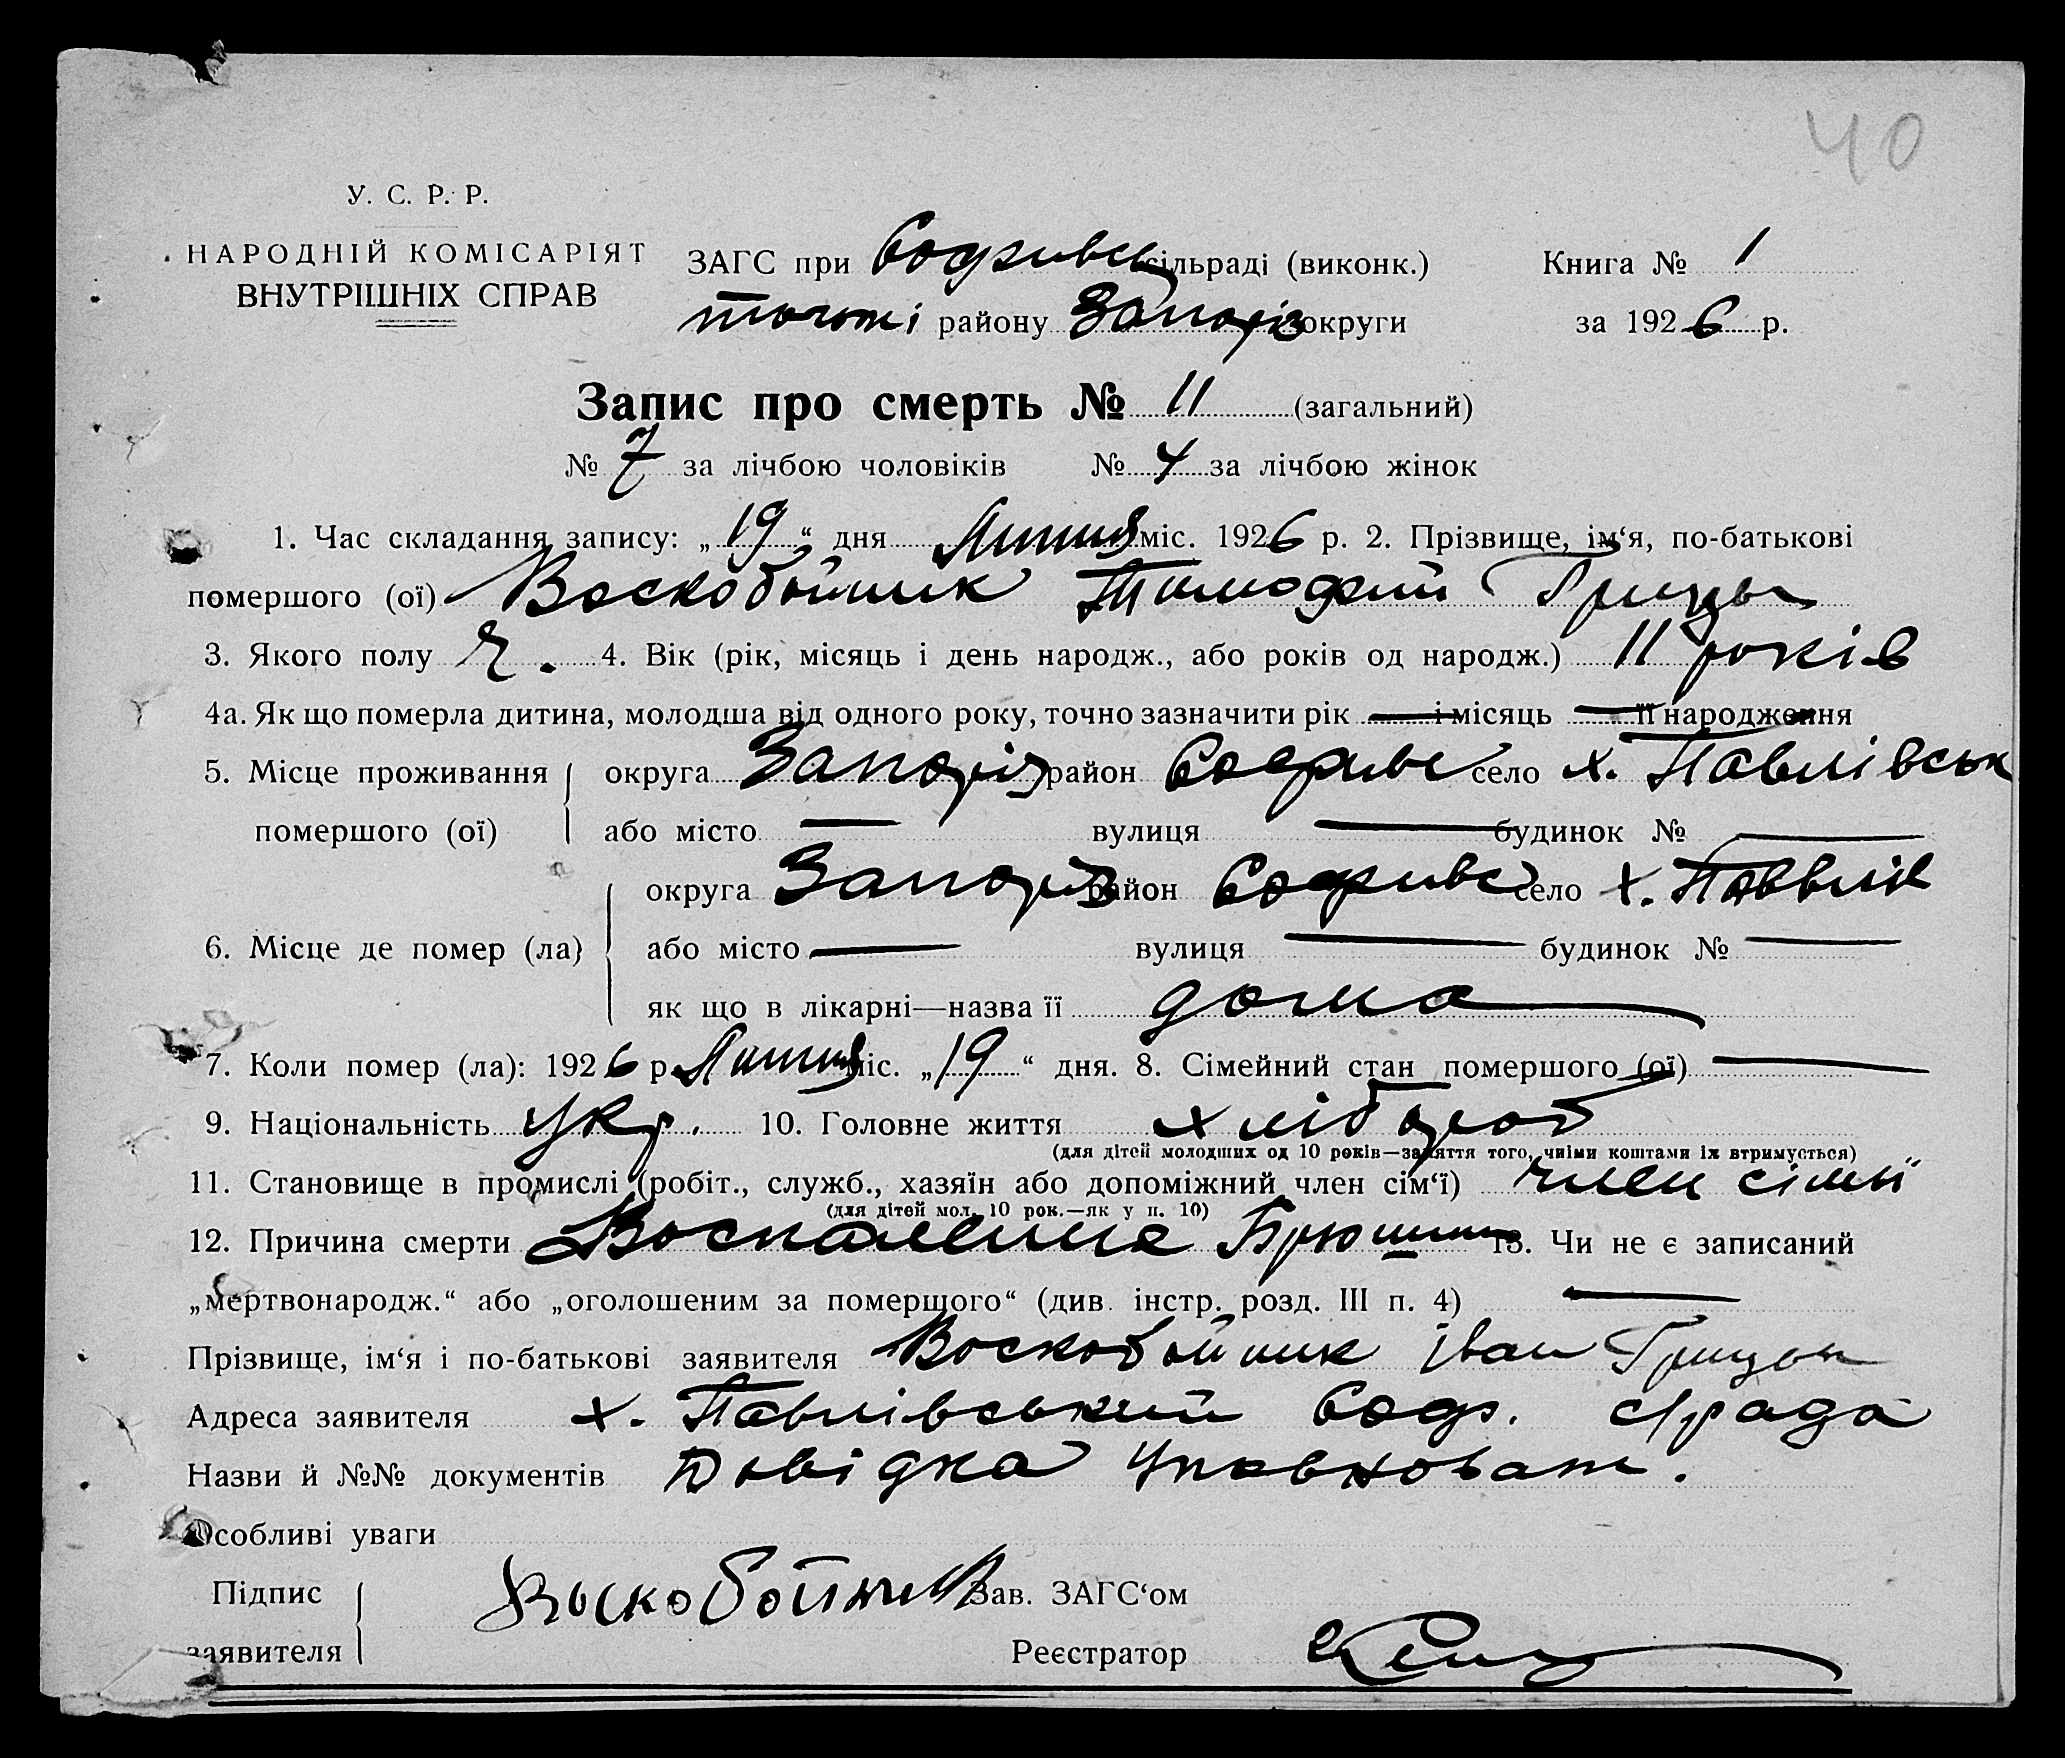 40
У. С. Р. Р.
НАРОДНІЙ КОМІСАРІЯТ
ВНУТРІШНІХ СПРАВ
ЗАГС при Софиївс сільраді (виконк.) Книга № 1
тогож і району Запоріз округи за 1926 р.
Запис про смерть № 11 (загальний)
№ 7 за лічбою чоловіків № 4 за лічбою жінок
1. Час складання запису: „19“ дня Липня міс. 1926 р. 2. Прізвище, ім‘я, по-батькові
помершого (ої) Воскобойник Тимофий Грицьк
3. Якого полу ч. 4. Вік (рік, місяць і день народж., або років од народж.) 11 років
4а. Як що померла дитина, молодша від одного року, точно зазначити рік — і місяць — її народження
5. Місце проживання округа Запоріз район Софиївс село х. Павлівськ
помершого (ої) або місто — вулиця — будинок № —
округа Запоріз район Софиївс село х. Павлів
6. Місце де помер (ла) або місто — вулиця — будинок № —
як що в лікарні—назва її дома
7. Коли помер (ла): 1926 р. Липня міс. „19“ дня. 8. Сімейний стан помершого (ої) —
9. Національність Укр. 10. Головне життя хлібороб
(для дітей молодших од 10 років—заняття того, чиїми коштами їх втримується)
11. Становище в промислі (робіт., служб., хазяїн або допоміжний член сім‘ї) член сімьї
(для дітей мол. 10 рок.—як у п. 10)
12. Причина смерти Воспаление Брюшины 13. Чи не є записаний
„мертвонародж.“ або „оголошеним за помершого“ (див. інстр. розд. III п. 4) —
Прізвище, ім‘я і по-батькові заявителя Воскобойник Іван Грицьк
Адреса заявителя х. Павлівський Соф. с/рада
Назви й №№ документів Довідка Уповноваж.
Особливі уваги
Підпис Воскобойник Зав. ЗАГС‘ом
заявителя Реєстратор